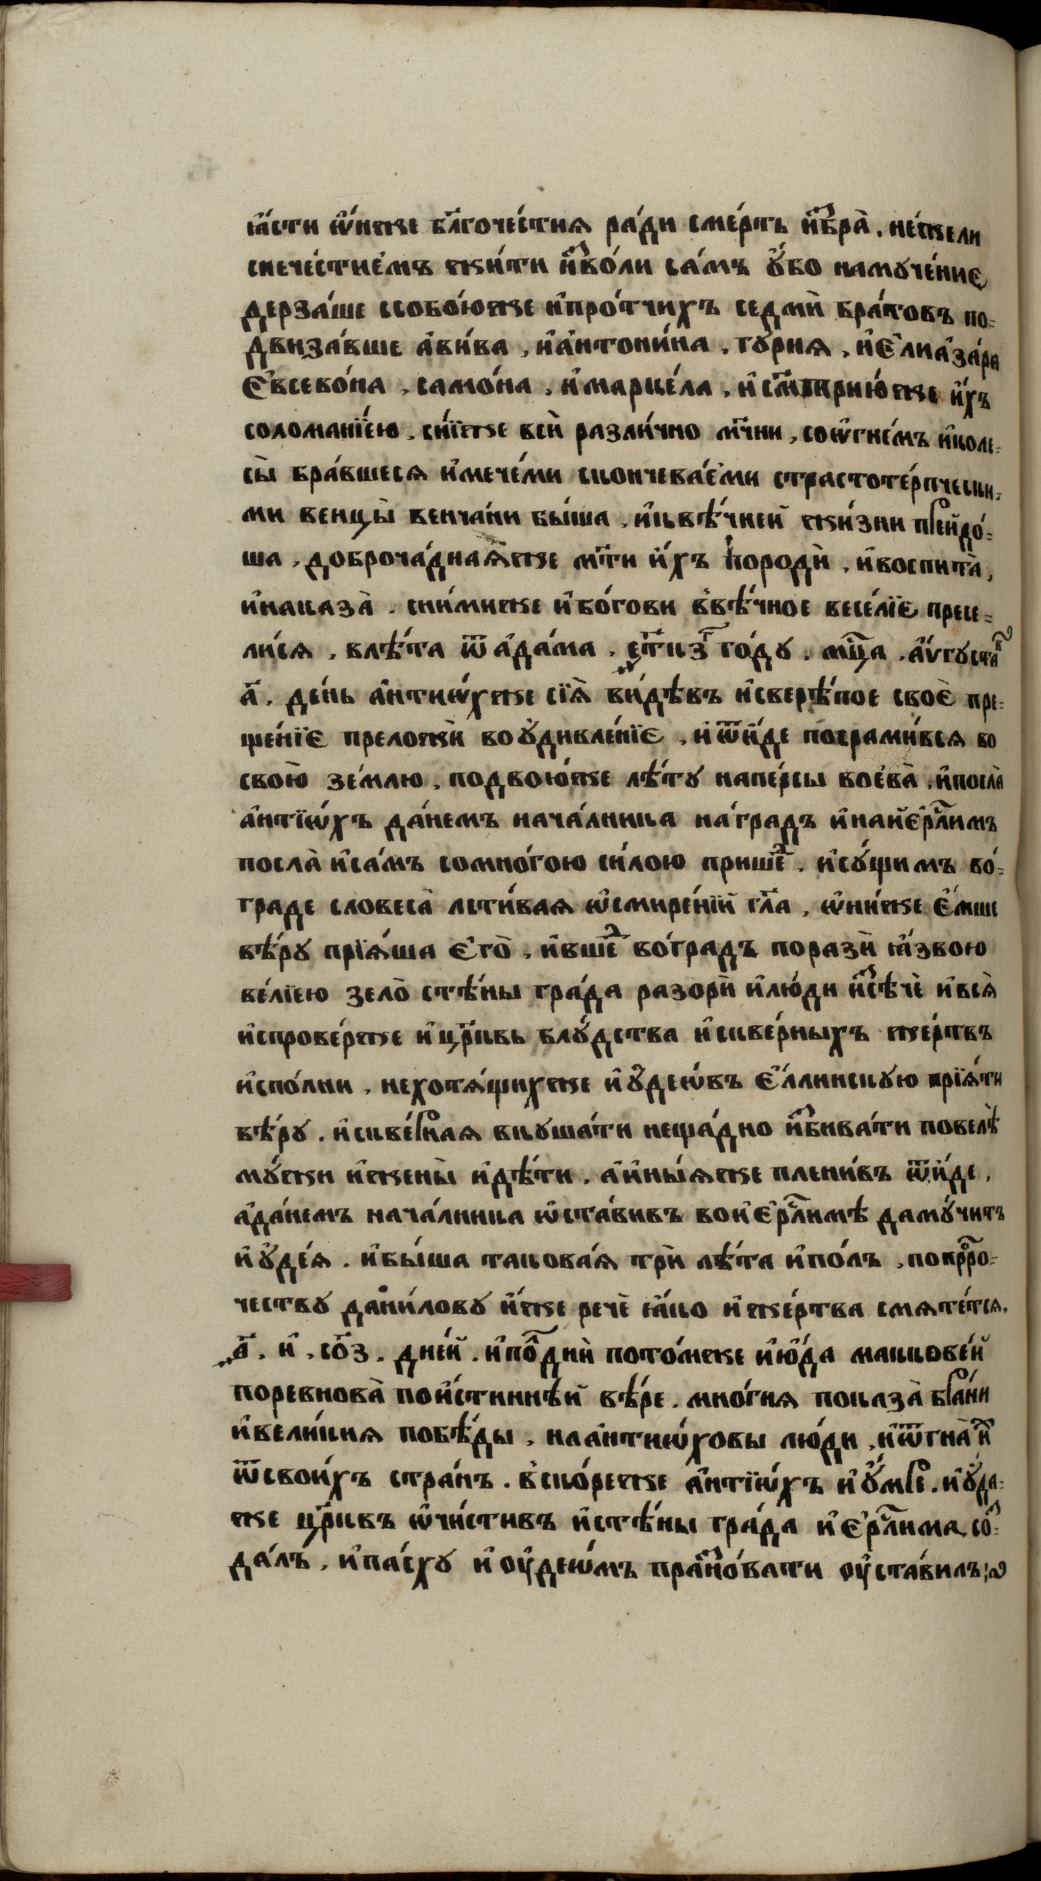 ꙗ҆́сти ѡ҆́нже бл҃гоче́стиѧ ра́ди сме́рть и҆збра̀. не́жели
снече́стие́мъ жи́ти и҆зво́ли са́мъ ѹ҆́бо намуче́ние
дерза́ше ссобо́юже и҆про́тчихъ седмѝ бра́товъ по-
двиза́вше а҆ви́ва, и҆а҆нтони́на, гу́риѧ, и҆є҆лиа҆за́ра
є҆́всевѡ́на, само́на, и҆марце́ла, и҆ с̾мт҃рию́же и҆́хъ
соломані́ею. сі́иже всѝ разли́чно мч҃ни, соѡ҆гне́мъ и҆коле-
сы̀ бра́вшесѧ и҆мече́ми скончева́е҆ми страстоте́рпчески-
ми венцы̀ венча́ни бы́ша, и҆квѣ́чней жи́зни прейдо́-
ша, доброча́днаѧ҆́же мт҃и и҆́хъ породѝ, и҆воспита̀,
и҆наказа̀. сни́миже и҆бо́гови в̾вѣ́чное весе́лїе пресе-
ли́сѧ, влѣ́та ѿ а҆да́ма, ҂є҃тнз го́ду. мц҃а. а҆́ѵгуста
а҃. де́нь а҆нтиѡ́хже сїѧ̀ ви́дѣвъ и҆сверѣ́пое своѐ пре-
ще́нїе преложѝ воѹ҆дивле́нїе, и҆ѿи́де посрами́всѧ во
свою̀ зе́млю. подвою́же лѣ́ту напе́рсы воева̀. и҆посла̀
а҆нтїѡ́хъ да́немъ нача́лника на́градъ и҆наи҆є҆рл҃имъ
посла̀ и҆са́мъ сомно́гою си́лою прише́д. и҆су́щимъ во́-
граде словеса̀ лсти́ваѧ ѡ҆смире́нїи гл҃а, ѡ҆ни́же є҆́мше
вѣ́ру прїѧ́ша є҆гѝ, и҆вше́д во́градъ поразѝ ꙗ҆́звою
ве́лїею зело̀ стѣ́ны гра́да разорѝ и҆лю́ди и҆зсѣчѐ и҆всѧ̀
и҆спрове́рже и҆ цр҃ковь блу́дства и҆скве́рныхъ же́ртвъ
и҆спо́лни, нехотѧ́щихже и҆ѹ҆деѡ́въ є҆́ллинскую прїѧ́ти
вѣ́ру. и҆скве́рнаѧ вкуша́ти неща́дно и҆збива́ти повелѣ̀
му́жи и҆жены̀ и҆дѣ́ти. а҆и҆ны́ѧже плени́въ ѿи́де.
а҆да́немъ нача́лника ѡ҆ста́вивъ вои҆є҆рл҃имѣ даму́читъ
и҆ѹ҆де́ѧ. и҆бы́ша такова́ѧ трѝ лѣ́та и҆по́лъ, попрⷪро-
честву дани́лову и҆́же речѐ ꙗ҆́ко и҆же́ртва смѧте́тсѧ.
҂а҃. и҆. со҃з. дне́й. и҆по́лднѝ пото́мже и҆ю҆́да маккаве́й
поревнова̀ пои҆́стиннѣй вѣ́ре. мно́гиѧ показа̀ бра́ни
и҆вели́киѧ побѣ́ды, наа҆нтиѡ́ховы лю́ди, и҆ѿгна̀ и҆х
ѿсвои́хъ стра́нъ. в̾ско́реже а҆нтїѡ́хъ и҆ ѹ҆́мре. и҆ю҆́да-
же цр҃ковъ ѡ҆чи́стивъ и҆стѣ́ны гра́да и҆є҆рл҃има, со́з-
да́лъ, и҆па́сху и҆ оу҆деѡ́мъ пра́зновати оу҆ста́вилъ;